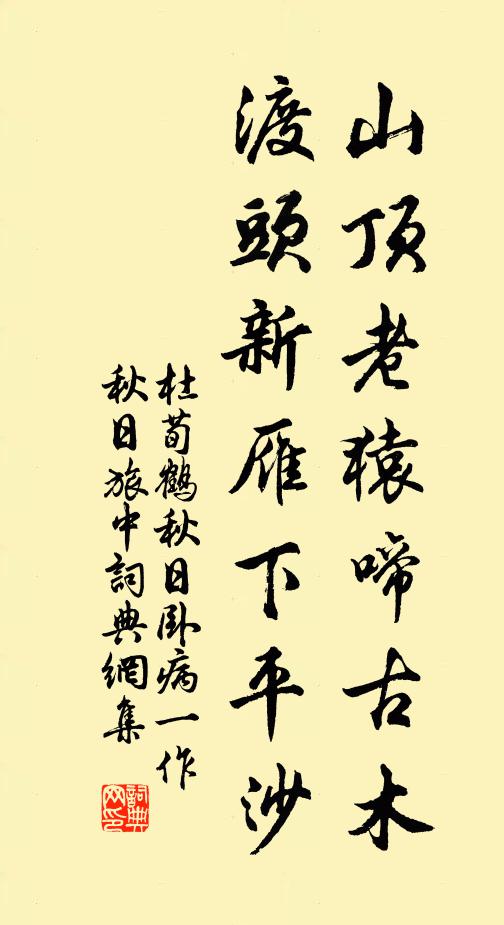 山頂老猿啼古木
渡頭新雁下平沙
杜荀鶴秋日卧病一作
秋日旅中詞典網集
詞典网印